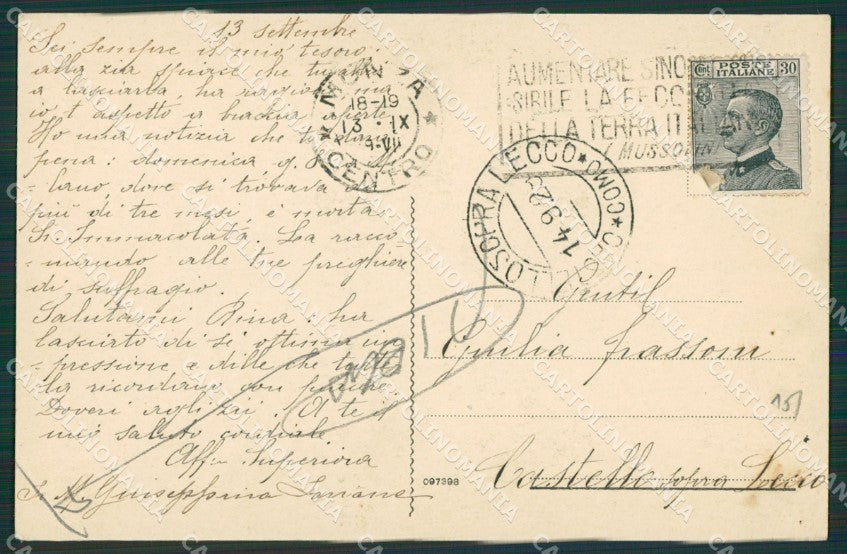 13 settembre
Sei sempre il mio tesoro:
alla zia spiace che tu abbia
a lasciarla, ha ragione, ma
io t'aspetto a braccia aperte.
Ho una notizia che ti darà
pena: domenica q. S. M.
-lano dove si trovava da
più di tre mesi, è morta
Sr. Immacolata. La racco
mando alle tue preghiere
di suffragio.
Salutami Pina: ha
lasciato di sé ottima im
-pressione e dille che tutte
la ricordano con piacere.
Doveri agli zii. A te il
mio saluto cordiale
Aff. Superiora
Sr. M. Giuseppina
MONZA
CENTRO
18-19
13 IX
AUMENTARE SINO
SIBILE LA FECO
DELLA TERRA ITALIANA
MUSSOLINI
POSTE
ITALIANE
Cent. 30
LO SOPRA LECCO * COMO *
14 9 29
Gentil
Giulia Grassoni
Castello sopra Lecco
15
097398
CARTOLINOMANIA